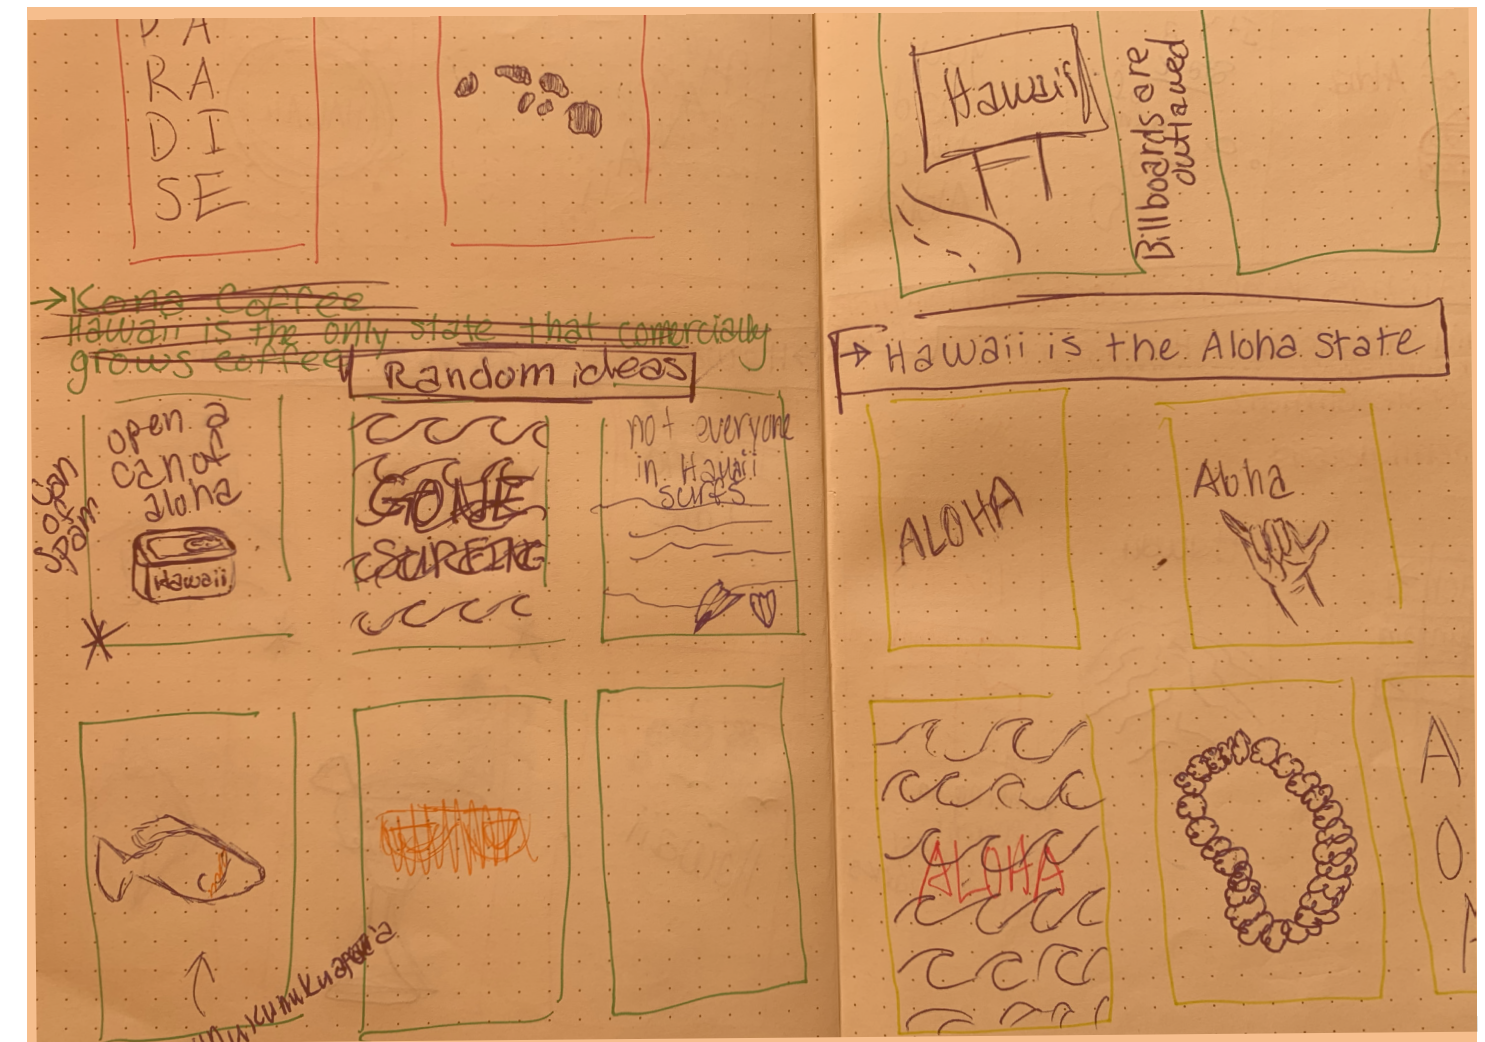 PA
RA
DI
SE
→ Kona Coffee
Hawaii is the only state that comercially
grows coffee
Random ideas
open a
can of
aloha
Hawaii
Can
of
Spam
GONE
SURFING
not everyone
in Hawaii
surfs
Hawaii
Billboards are
outlawed
→ Hawaii is the Aloha state
ALOHA
Aloha
ALOHA
A
O
A